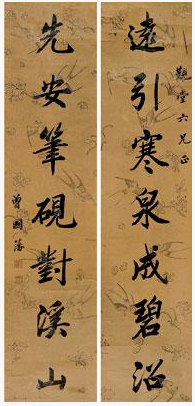 遠引寒泉成碧沼
觀堂六兄正
先安筆硯對溪山
曾國藩